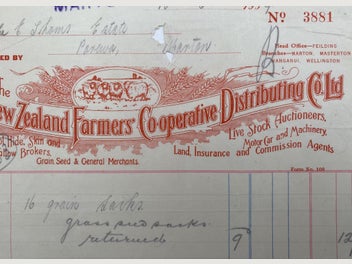 Nº 3881
Estate
Marton
Head Office—FEILDING
Branches—MARTON, MASTERTON
WANGANUI, WELLINGTON
ED BY
The
New Zealand Farmers' Co-operative Distributing Co. Ltd
Hide, Skin and
Tallow Brokers,
Grain Seed & General Merchants.
Live Stock Auctioneers,
Motor Car and Machinery,
Land, Insurance and Commission Agents
Form No. 100
16 grain sacks
grass seed sacks
returned 9 12